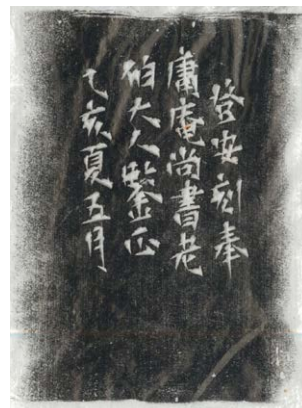 登安刻奉
庸庵尚書老
伯大人鑒正
乙亥夏五月